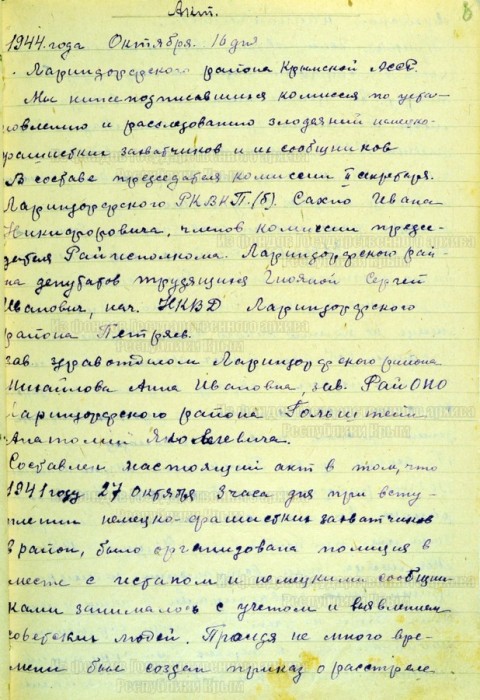 8
Акт.
1944 года Октября 16 дня
Лариндорфского района Крымской АССР.
Мы нижеподписавшиеся комиссия по уста-
новлению и расследованию злодеяний немецко-
фашистких захватчиков и их сообщников
В составе председателя комиссии II секретаря.
Лариндорфского РКВКП(б). Сахно Ивана
Никифоровича, членов комиссии предсе-
дателя Райисполкома. Лариндорфского рай-
на депутатов трудящихся Сергей
Иванович, нач. НКВД Лариндорфского
района Петряев.
зав. здравотделом Лариндорфского района
Михайлова Анна Ивановна зав. РайОНО
Лариндорфского района
Анатолий
Составлен настоящий акт в том, что
1941 году 27 Октября 3 часа дня при всту-
плении немецко-фашистких захватчиков
в район, было организована полиция в
месте с гестапом и немецкими сообщни-
ками занималось с учетом и выявлением
советских людей. не много вре-
мени был создан приказ о расстреле
Из Фондов Государственного архива
Республики Крым